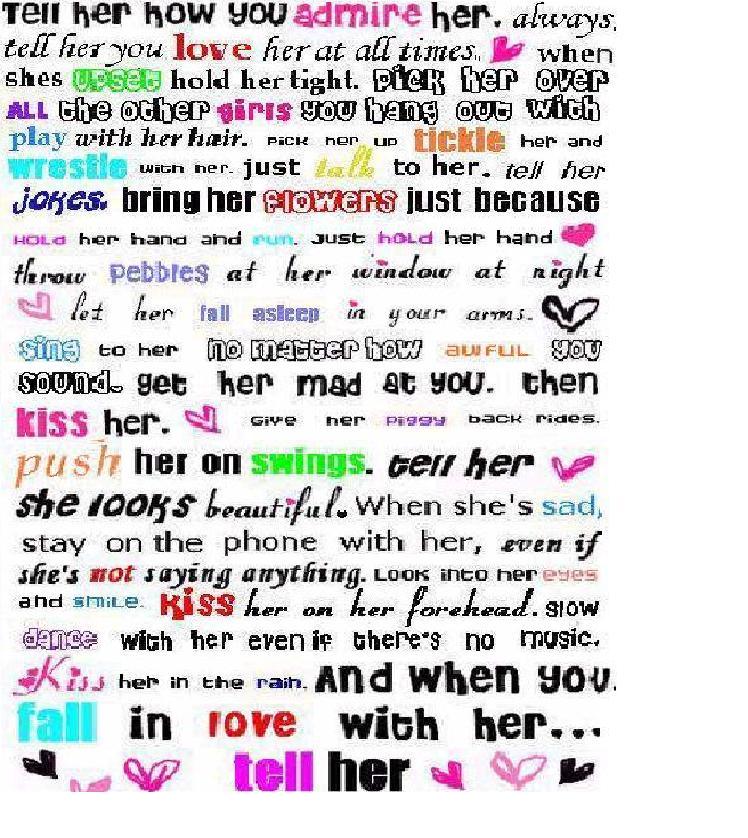 Tell her how you admire her. always.
tell her you love her at all times. when
shes upset hold her tight. pick her over
ALL the other girls you hang out with
play with her hair. pick her up tickle her and
wrestle with her. just talk to her. tell her
jokes. bring her flowers just because
HOLd her hand and run. Just HOLd her hand
throw pebbles at her window at night
let her fall asleep in your arms.
sing to her no matter how awful you
sound. get her mad at you. then
kiss her. Give her piggy back rides.
push her on swings. tell her
she looks beautiful. When she's sad,
stay on the phone with her, even if
she's not saying anything. Look into her eyes
and smile. Kiss her on her forehead. slow
dance with her even if there's no music.
Kiss her in the rain. And when you.
fall in love with her...
tell her